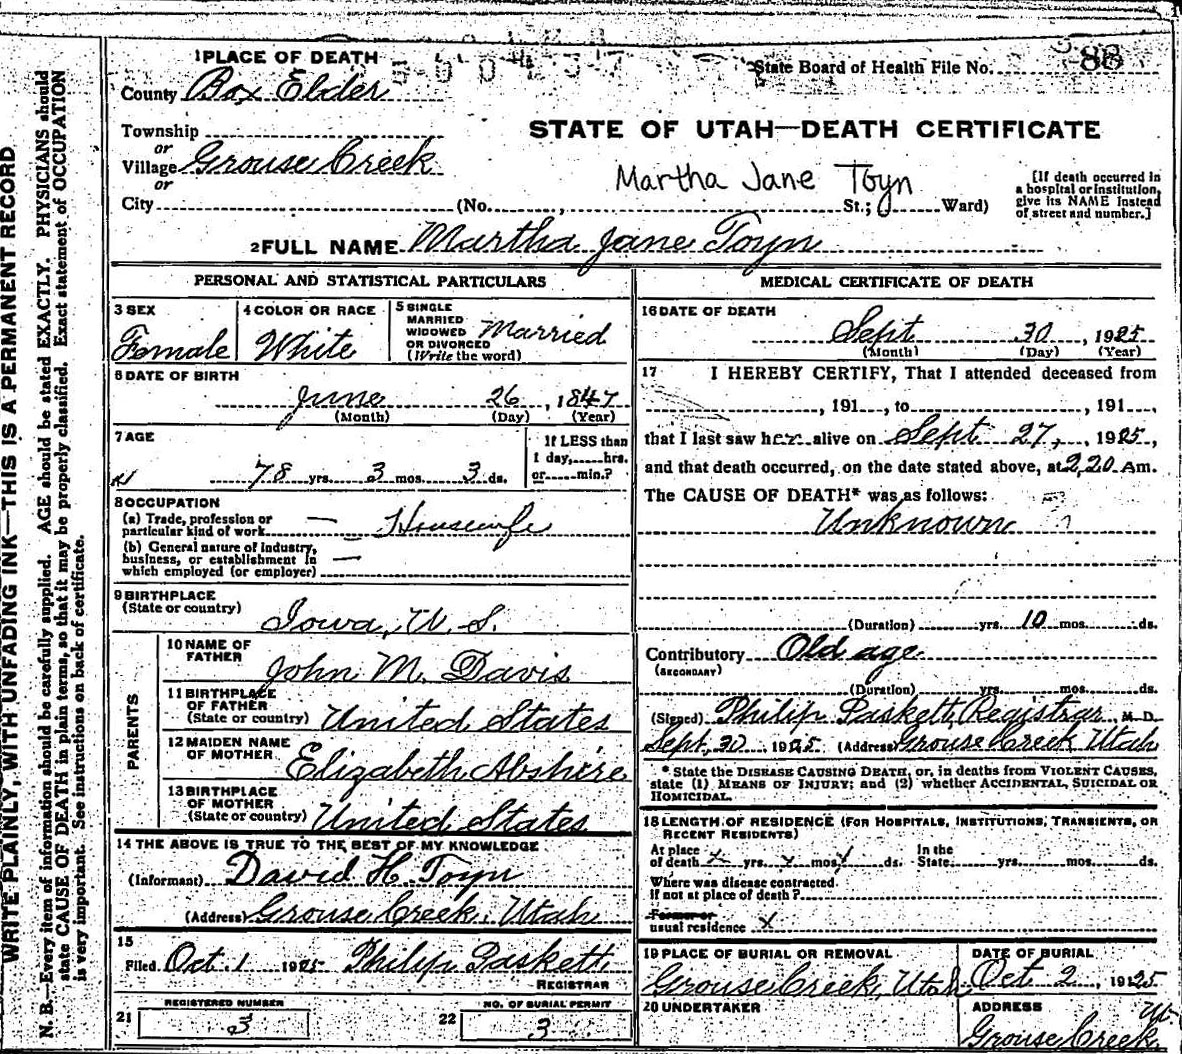 1 PLACE OF DEATH
State Board of Health File No. 88
County Box Elder
STATE OF UTAH—DEATH CERTIFICATE
Township
or
Village Grouse Creek
or
Martha Jane Toyn
[If death occurred in
a hospital or institution,
give its NAME instead
of street and number.]
City (No. , St.; Ward)
2 FULL NAME Martha Jane Toyn
PERSONAL AND STATISTICAL PARTICULARS
3 SEX
Female
4 COLOR OR RACE
White
5 SINGLE
MARRIED
WIDOWED
OR DIVORCED
(Write the word)
Married
6 DATE OF BIRTH
June 26, 1847
(Month) (Day) (Year)
7 AGE
78 yrs. 3 mos. 3 ds.
If LESS than
1 day, hrs.
or min.?
8 OCCUPATION
(a) Trade, profession or
particular kind of work — Housewife
(b) General nature of industry,
business, or establishment in —
which employed (or employer)
9 BIRTHPLACE
(State or country) Iowa, U. S.
PARENTS
10 NAME OF
FATHER John M. Davis
11 BIRTHPLACE
OF FATHER
(State or country) United States
12 MAIDEN NAME
OF MOTHER Elizabeth Abshire
13 BIRTHPLACE
OF MOTHER
(State or country) United States
14 THE ABOVE IS TRUE TO THE BEST OF MY KNOWLEDGE
(Informant) David H. Toyn
(Address) Grouse Creek, Utah
15
Filed Oct. 1 1925 Philip Paskett
REGISTRAR
REGISTERED NUMBER
21 3
NO. OF BURIAL PERMIT
22 3
MEDICAL CERTIFICATE OF DEATH
16 DATE OF DEATH
Sept 30, 1925
(Month) (Day) (Year)
17 I HEREBY CERTIFY, That I attended deceased from
, 191 , to , 191 ,
that I last saw her alive on Sept 27, 1925,
and that death occurred, on the date stated above, at 2,20 Am.
The CAUSE OF DEATH* was as follows:
Unknown
(Duration) yrs. 10 mos. ds.
Contributory Old age
(SECONDARY)
(Duration) yrs. mos. ds.
(Signed) Philip Paskett, Registrar, M. D.
Sept. 30 1925 (Address) Grouse Creek Utah
* State the DISEASE CAUSING DEATH, or, in deaths from VIOLENT CAUSES,
state (1) MEANS OF INJURY; and (2) whether ACCIDENTAL, SUICIDAL OR
HOMICIDAL.
18 LENGTH OF RESIDENCE (FOR HOSPITALS, INSTITUTIONS, TRANSIENTS, OR
RECENT RESIDENTS)
At place
of death x yrs. mos. ds.
In the
State: yrs. mos. ds.
Where was disease contracted
if not at place of death?
Former or
usual residence x
19 PLACE OF BURIAL OR REMOVAL
Grouse Creek, Utah
DATE OF BURIAL
Oct 2, 1925
20 UNDERTAKER
ADDRESS
Ut.
Grouse Creek
WRITE PLAINLY, WITH UNFADING INK—THIS IS A PERMANENT RECORD
N. B.—Every item of information should be carefully supplied. AGE should be stated EXACTLY. PHYSICIANS should
state CAUSE OF DEATH in plain terms, so that it may be properly classified. Exact statement of OCCUPATION
is very important. See instructions on back of certificate.